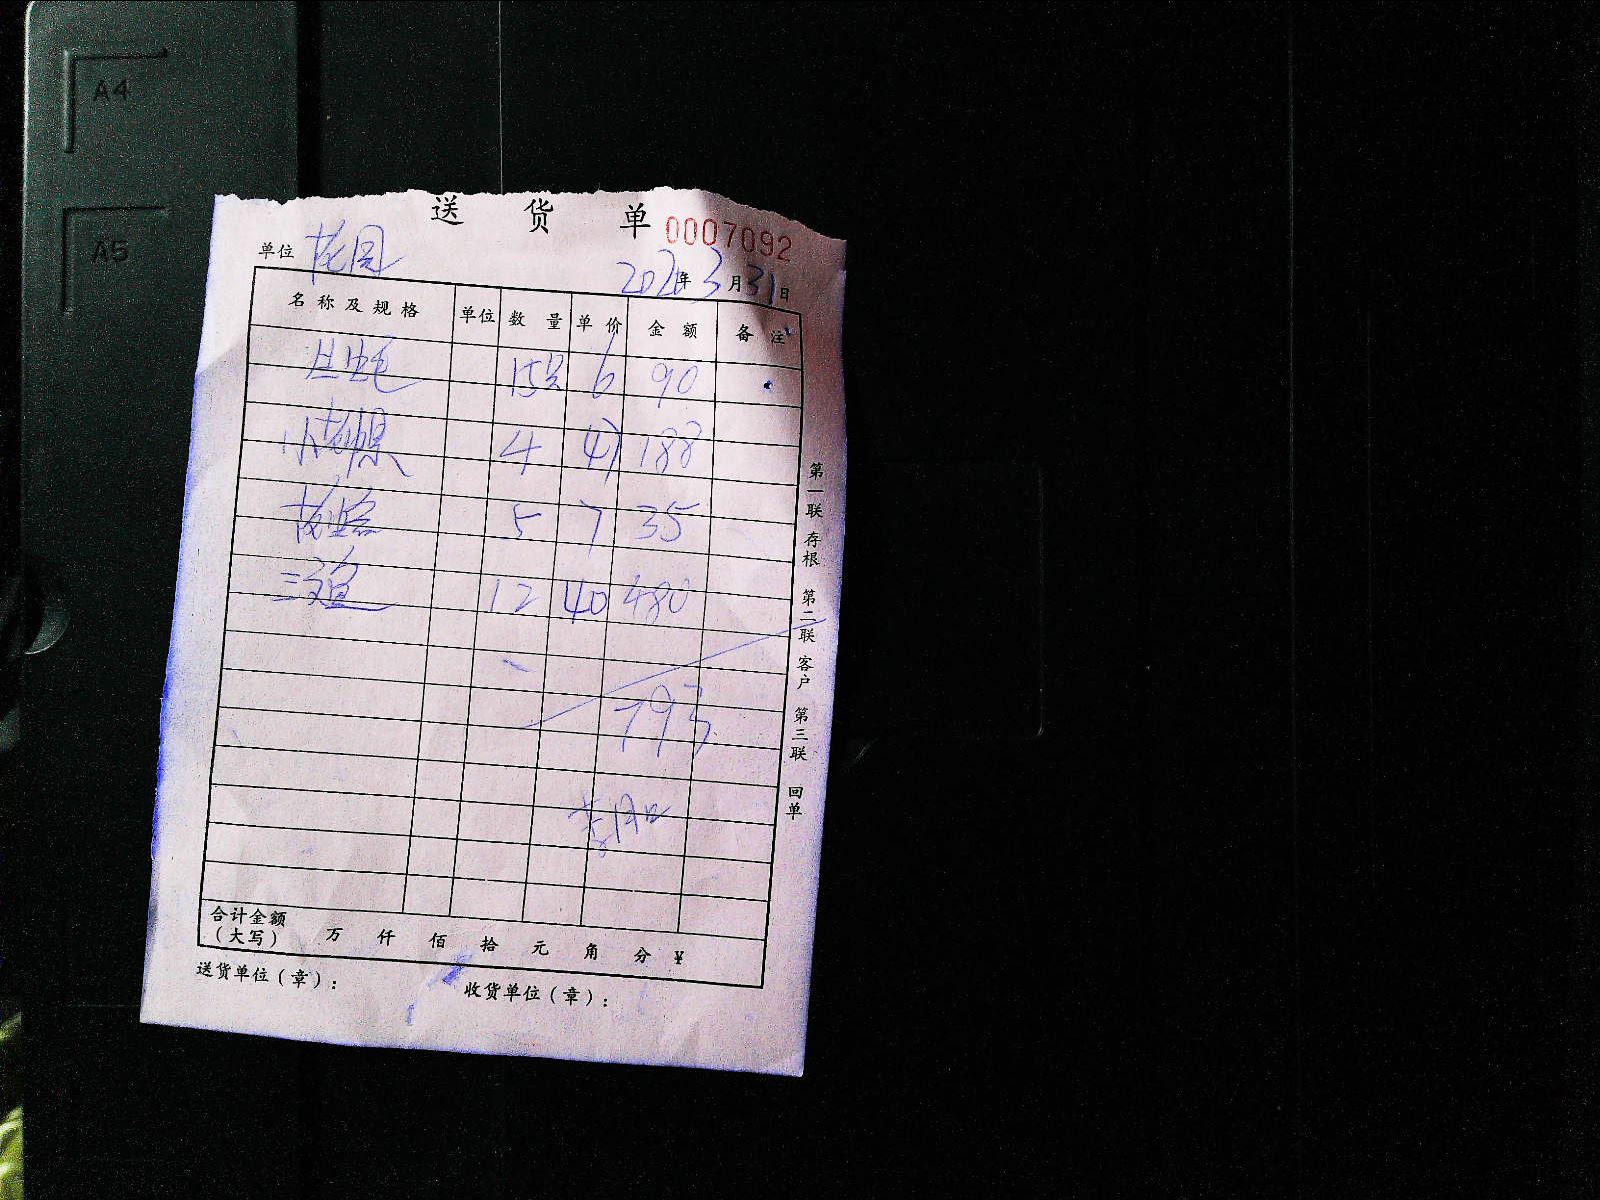 A4
A5
送货单
0007092
单位 花园
2020年3月31日
名称及规格 单位 数量 单价 金额 备注
15只 6 90
4 47 188
5 7 35
三文鱼 12 40 480
793
合计金额（大写） 万 仟 佰 拾 元 角 分 ¥
送货单位（章）： 收货单位（章）：
第一联 存根 第二联 客户 第三联 回单